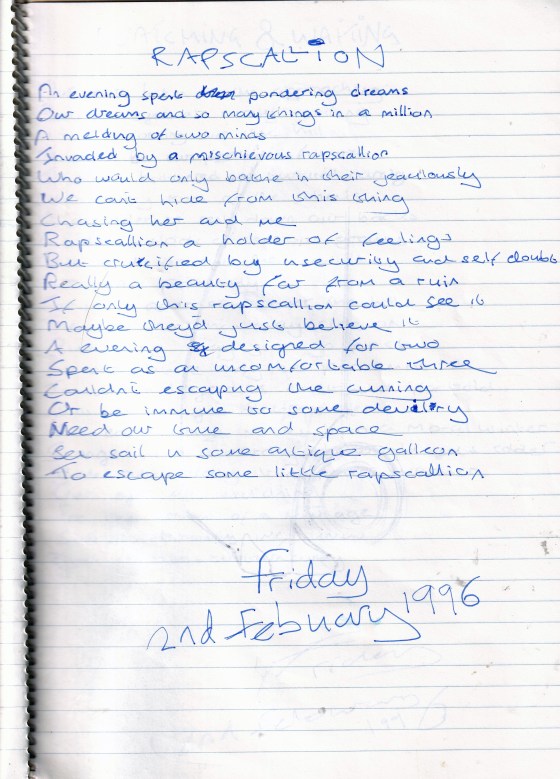 RAPSCALLION
An evening spent pondering dreams
Our dreams and so many things in a million
A melding of two minds
Invaded by a mischievous rapscallion
Who would only bathe in their jeaulously
We cant hide from this thing
Chasing her and me
Rapscallion a holder of feelings
But crucified by insecurity and self doubt
Really a beauty far from a ruin
If only this rapscallion could see it
Maybe they'd just believe it
A evening designed for two
Spent as an uncomfortable three
Couldn't escaping the cunning
Or be immune to some devilry
Need our time and space
Set sail in some antique galleon
To escape some little rapscallion
Friday
2nd Febuary 1996